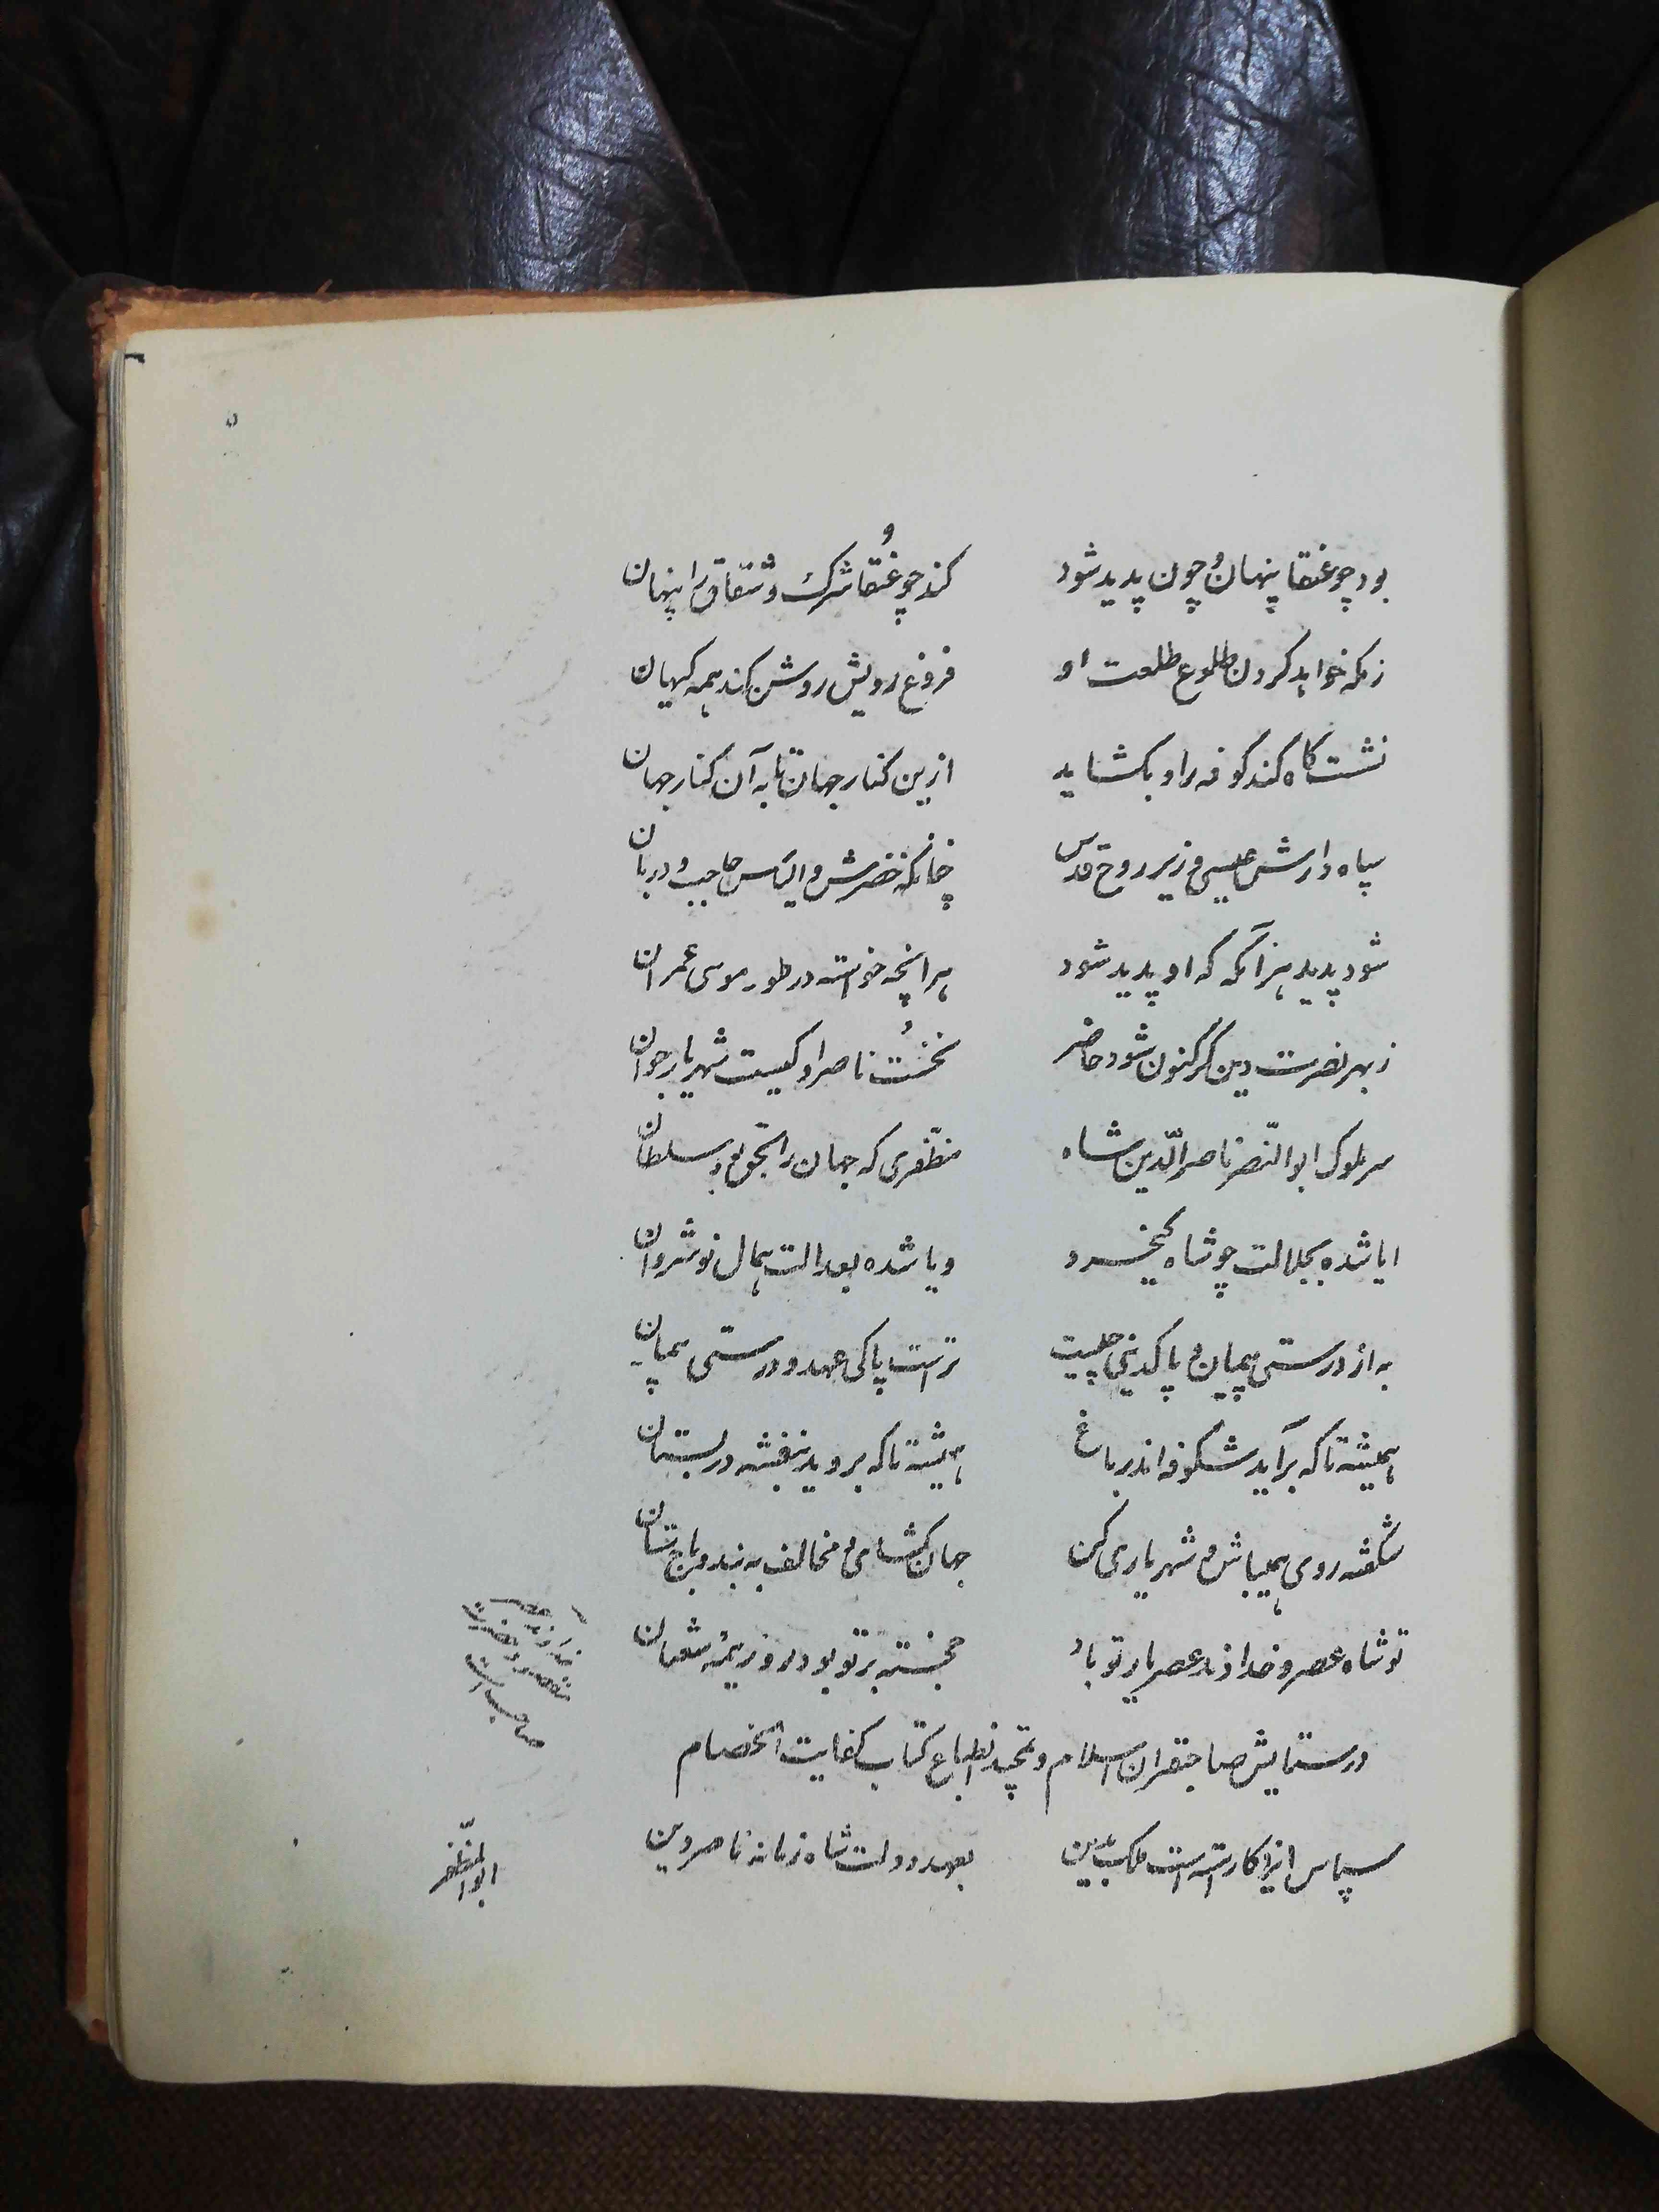 بود چو عنقا پنهان و چون پدید شود کند چو عنقا شرک و نفاق را پنهان
ز مکه خواهد کردن طلوع طلعت او فروغ رویش روشن کند همه کیهان
نشست گاه کند کوفه را و بگشاید ازین کنار جهان تا به آن کنار جهان
سپاه دارش عیسی وزیر روح قدس چنانکه خضرش و الیاس حاجب و دربان
شود پدید هر آنگه که او پدید شود هر آنچه خواسته در طور موسی عمران
ز بهر نصرت دین گر کنون شود حاضر نخست ناصر او کیست شهریار جوان
سر ملوک ابوالنصر ناصرالدین شاه مظفری که جهان را بحق بود سلطان
ایا شده بجلالت چو شاه کیخسرو و یا شده بعدالت همال نوشروان
به از درستی پیمان و پاکدینی چیست تراست پاکی عهد و درستی پیمان
همیشه تا که برآید شکوفه اندر باغ همیشه تا که بروید بنفشه در بستان
شکفته روی همیباش و شهریاری کن جهان گشای و مخالف به بند و باج ستان
تو شاه عصر و خداوند عصر یار تو باد خجسته بر تو بود روز نیمهٔ شعبان
عصر
صاحب است
در ستایش صاحبقران اسلام و تمجید انطباع کتاب کفایت الخصام
سپاس ایزد کاراسته است ملک بعهد دولت شاه زمانه ناصر دین
ابوالمظفر